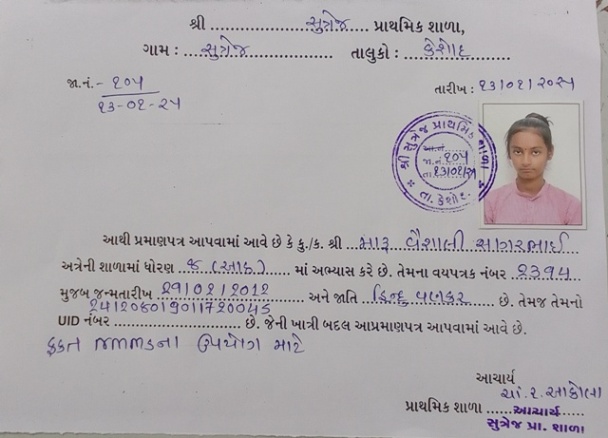 શ્રી ........ સુત્રેજ ........ પ્રાથમિક શાળા,
ગામ : ... સુત્રેજ ............ તાલુકો : .. કેશોદ ............
જા.નં.- ૧૦૫
તારીખ : ૧૩/૦૧/૨૦૨૫
૧૩-૦૧-૨૫
શ્રી સુત્રેજ પ્રાથમિક શાળા
જા.નં. ૧૦૫
તા. ૧૩/૦૧/૨૫
તા. કેશોદ.
આથી પ્રમાણપત્ર આપવામાં આવે છે કે કુ./ક. શ્રી ... મારૂ વૈશાલી સાગરભાઈ
અત્રેની શાળામાં ધોરણ . ૮ (આઠ) ...... માં અભ્યાસ કરે છે. તેમના વયપત્રક નંબર .. ૨૩૧૫
મુજબ જન્મતારીખ ............ અને જાતિ . હિન્દુ વણકર ........ છે. તેમજ તેમનો
UID નંબર ........................ છે. જેની ખાત્રી બદલ આપ્રમાણપત્ર આપવામાં આવે છે.
ફક્ત ના ઉપયોગ માટે
આચાર્ય
પ્રાથમિક શાળા ...... આચાર્ય ......
સુત્રેજ પ્રા. શાળા